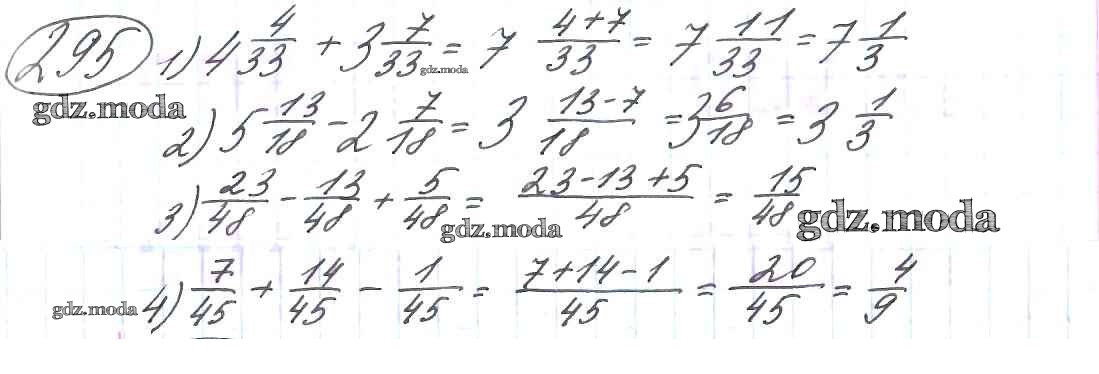 295 1) 4 4/33 + 3 7/33 = 7 (4+7)/33 = 7 11/33 = 7 1/3
gdz.moda
gdz.moda
2) 5 13/18 - 2 7/18 = 3 (13-7)/18 = 3 6/18 = 3 1/3
3) 23/48 - 13/48 + 5/48 = (23-13+5)/48 = 15/48
gdz.moda
gdz.moda
gdz.moda
4) 7/45 + 14/45 - 1/45 = (7+14-1)/45 = 20/45 = 4/9